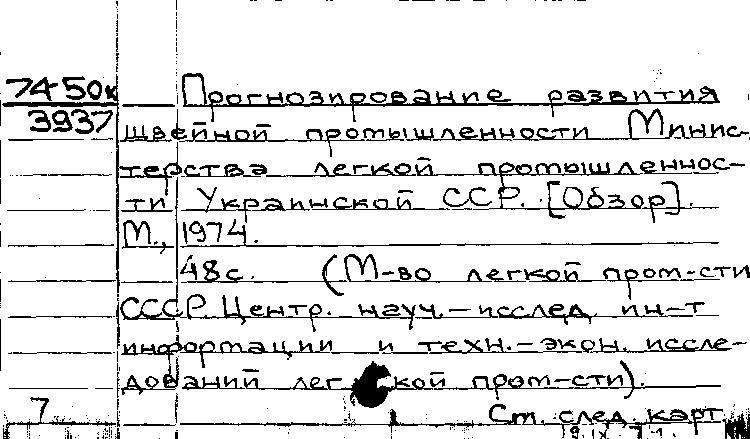 74-50к Прогнозирование развития
3937 швейной промышленности Минис-
терства легкой промышленнос-
ти Украинской ССР. [Обзор].
М., 1974.
48с. (М-во легкой пром-сти
СССР. Центр. науч.-исслед. ин-т
информации и техн.-экон. иссле-
дований легкой пром-сти).
7 См. след. карт